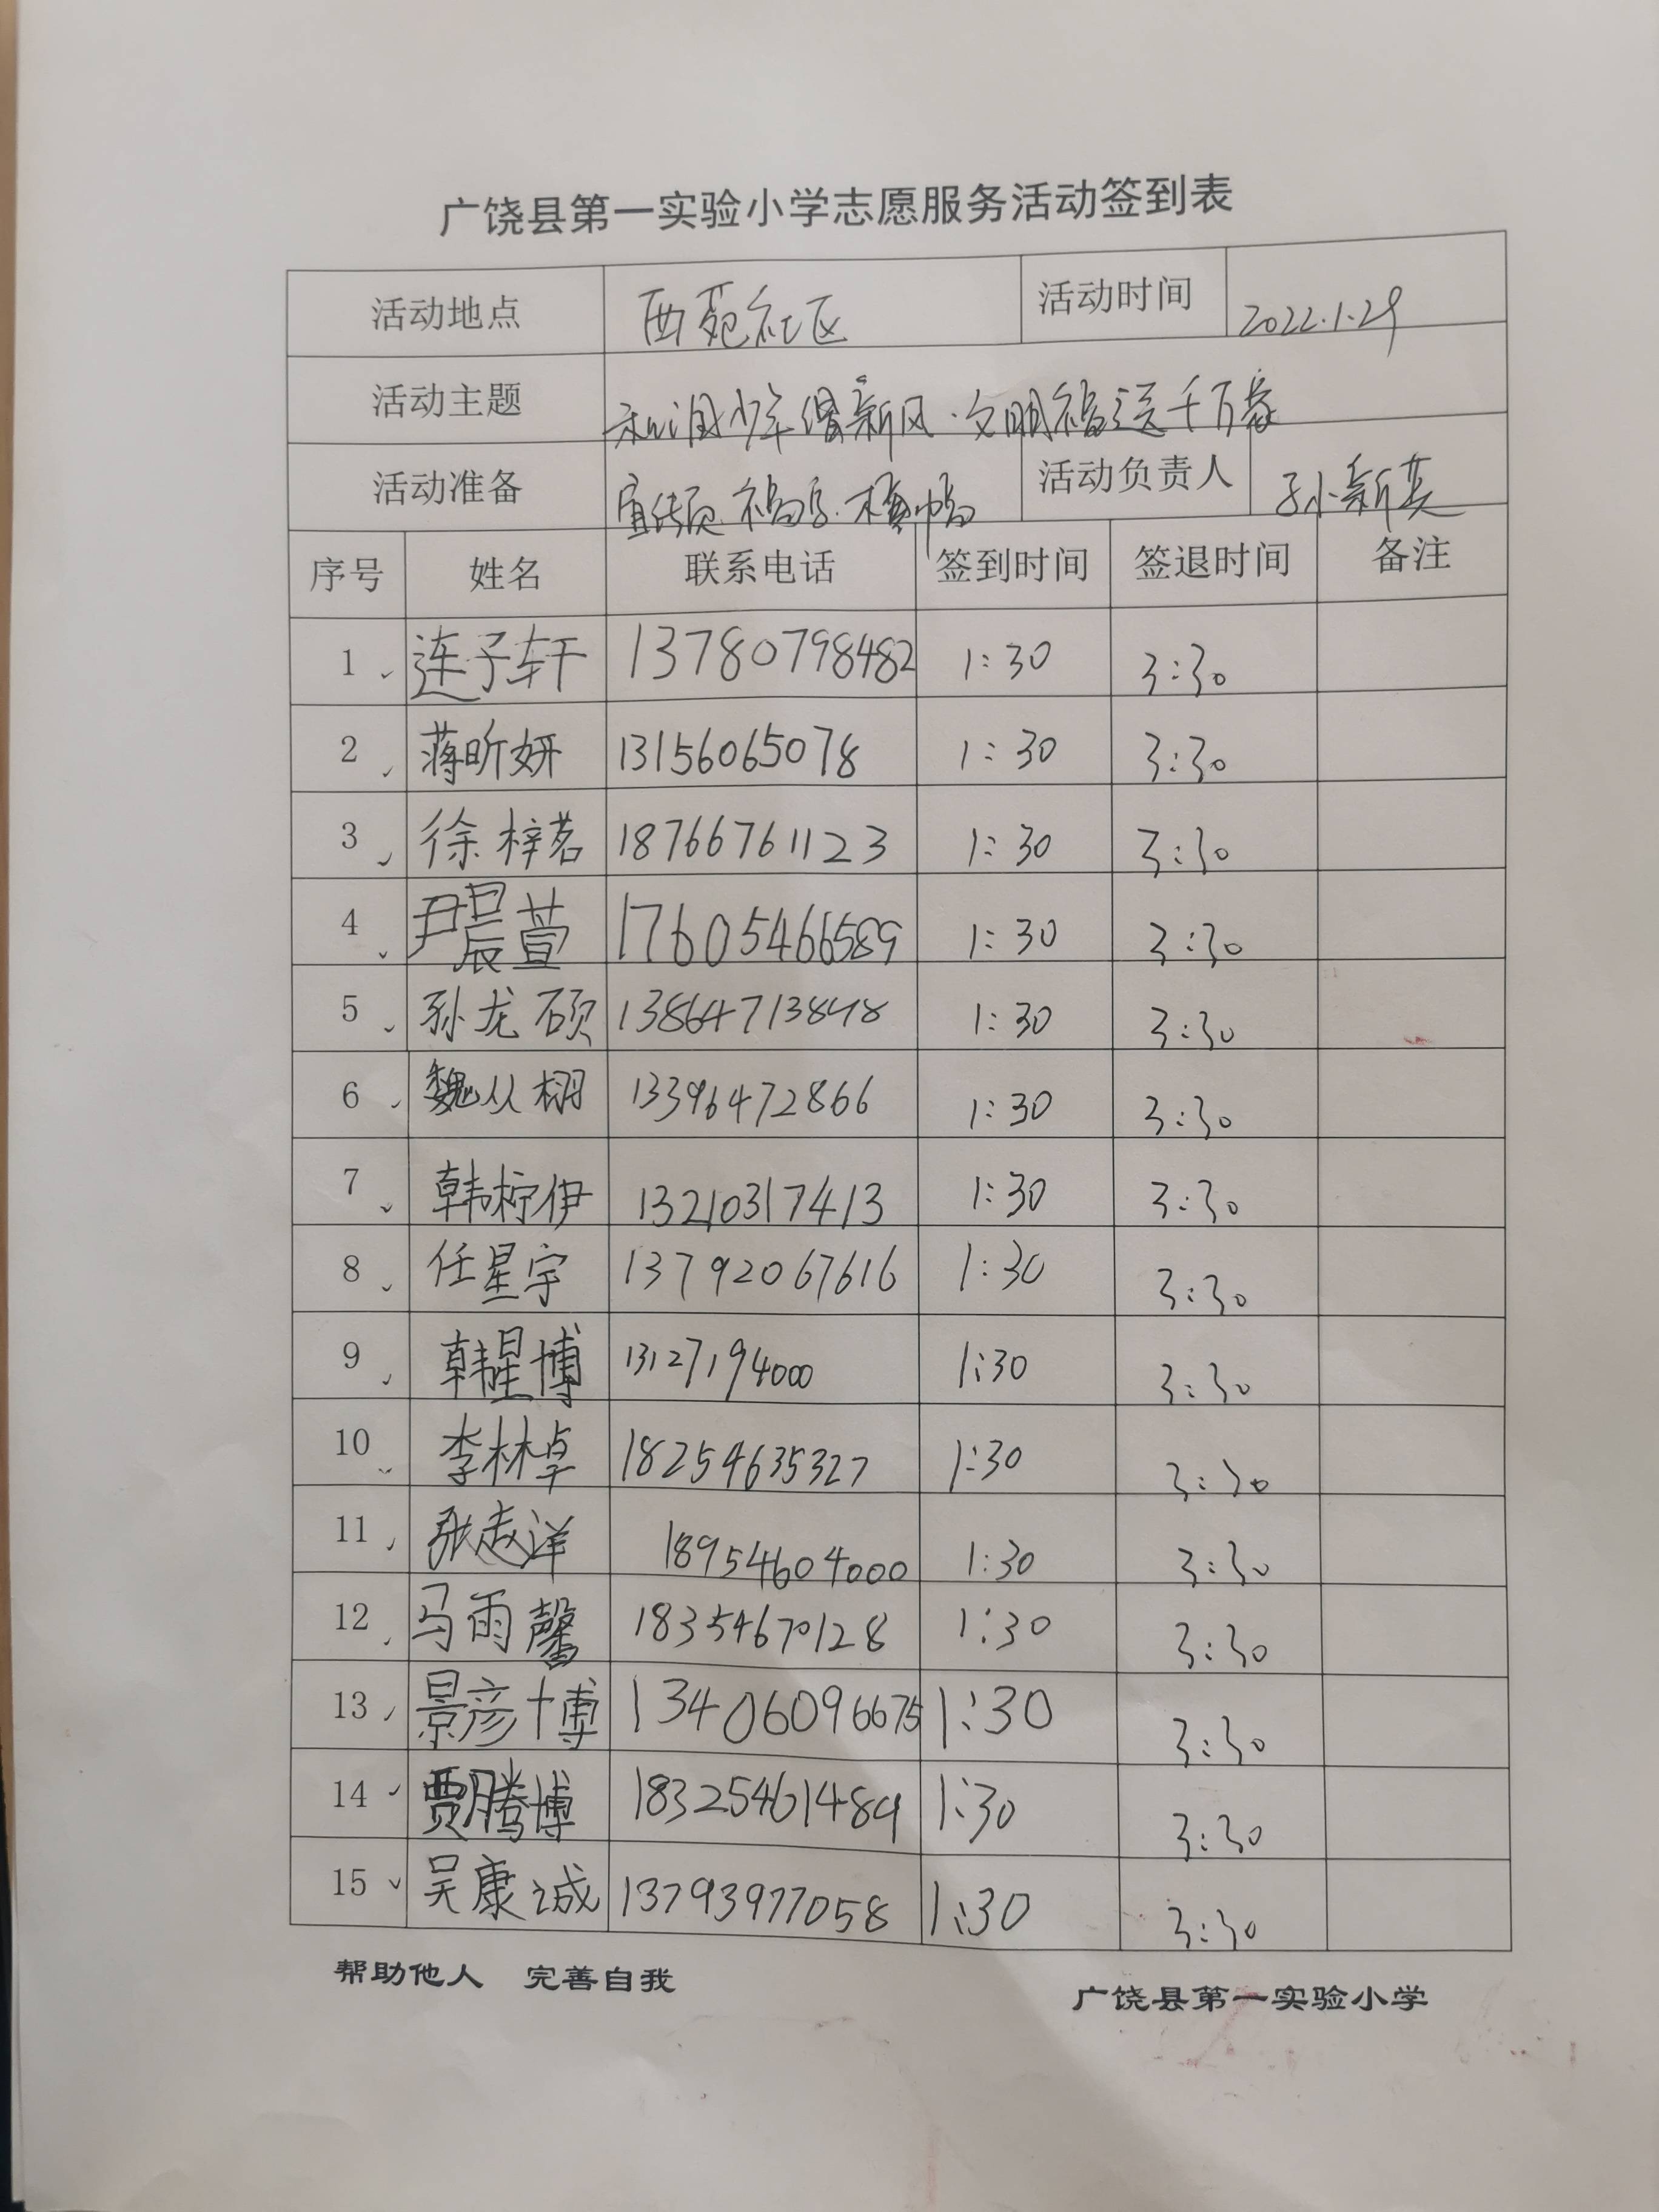 广饶县第一实验小学志愿服务活动签到表
活动地点 西苑社区 活动时间 2022.1.29
活动主题 和润少年倡新风·文明福送千万家
活动准备 宣传页 福字 横幅 活动负责人 孙新英
序号 姓名 联系电话 签到时间 签退时间 备注
1 连子轩 13780798482 1:30 3:30
2 蒋昕妍 13156065078 1:30 3:30
3 徐梓茗 18766761123 1:30 3:30
4 尹晨萱 17605466589 1:30 3:30
5 孙龙硕 13864713848 1:30 3:30
6 魏从栩 13396472866 1:30 3:30
7 韩柠伊 13210317413 1:30 3:30
8 任星宇 13792067616 1:30 3:30
9 韩星博 13127194000 1:30 3:30
10 李林卓 18254635327 1:30 3:30
11 张赵洋 18954604000 1:30 3:30
12 马雨馨 18354670128 1:30 3:30
13 景彦博 13406096675 1:30 3:30
14 贾腾博 18325461489 1:30 3:30
15 吴康诚 13793977058 1:30 3:30
帮助他人 完善自我 广饶县第一实验小学